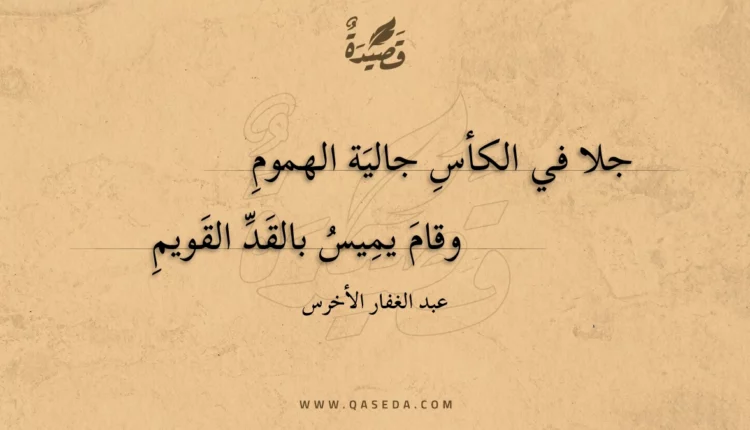 قَصِيدَةٌ
جلا في الكأسِ جاليَة الهمومِ
وقامَ يمِيسُ بالقَدِّ القَويمِ
عبد الغفار الأخرس
WWW.QASEDA.COM